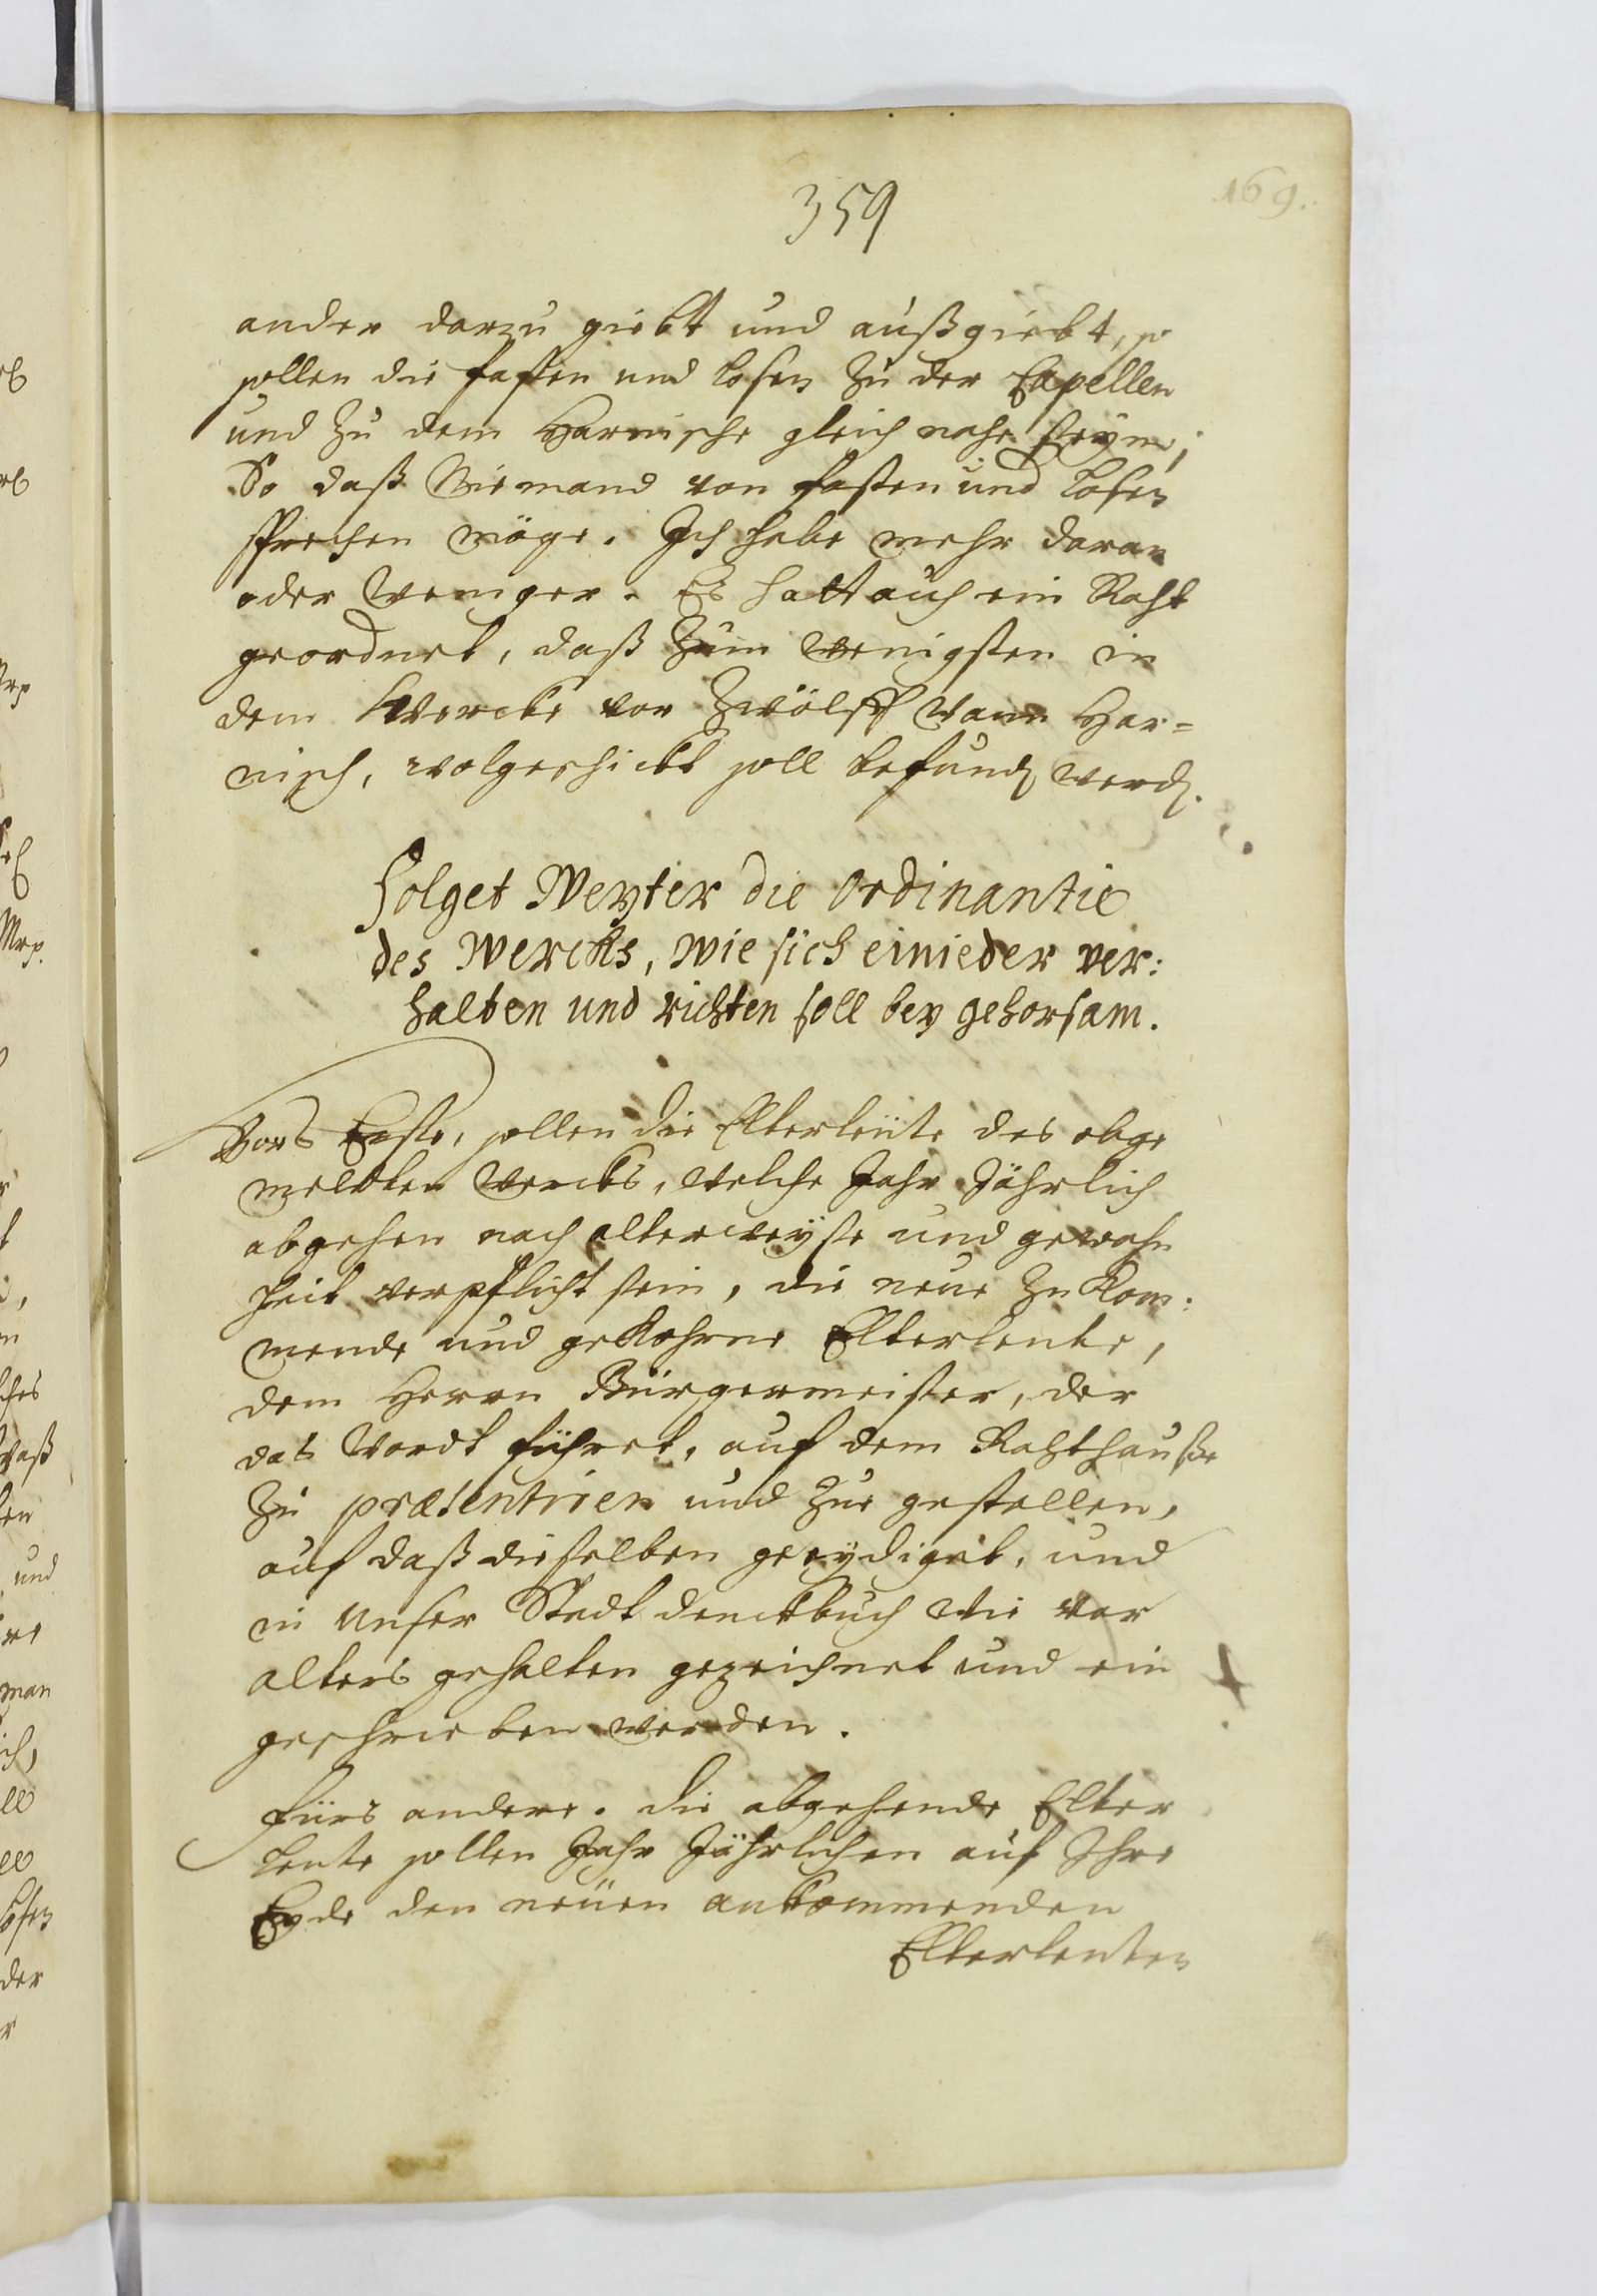 169.
359
ander darzu giebt und außgiebt, so
sollen die fasten und losen zu der Capellen
und zu dem Harnische gleich nahe seyn;
So daß Niemand von fasten und losen
sprechen möge. Ich habe mehr daran
oder weniger. Es hatt auch ein Raht
geordnet, daß zum wenigsten in
dem Wercke vor Zwölff Mann Har=
nisch, wolgeschickt soll befund werd.
Folget Weyter die Ordinantie
des Wercks, wie sich ein ieder ver:
halten und richten soll bey gehorsam.
Vors Erste, sollen die Elterleüte des obge
meldten Wercks, welche Jahr Jährlich
abgehen nach alter weyse und gewohn
heit verpflicht sein, die neue zu Kom:
mende und geKohrne Elterleute,
dem Herrn Bürgermeister, der
das Wordt führet, auf dem Rahthauße
zu præsentiren und zur gestellen,
auf daß dieselben geeydiget, und
in unser Stadt denckbuch wie vor
alters gehalten gezeichnet und ein
geschrieben werden.
Fürs andere. die abgehende Elter
leute sollen Jahr Jährlichen auf Ihre
Eyde den neüen ankommenden
Elterleuten